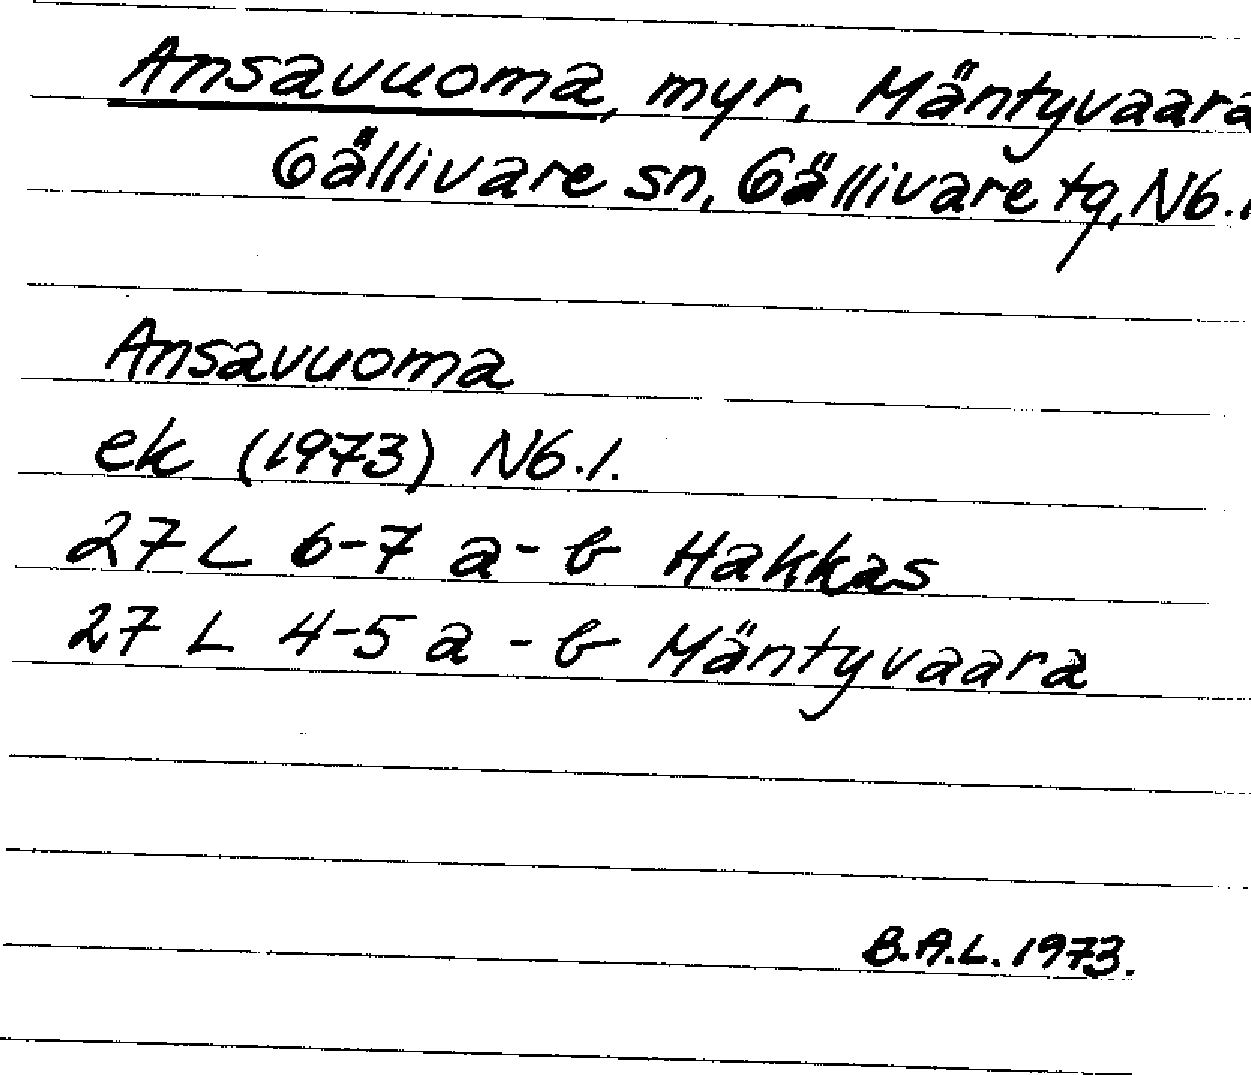 Ansavuoma, myr, Mäntyvaara
Gällivare sn, Gällivare tg, Nb.
Ansavuoma
ek (1973) Nb.1.
27 L 6-7 a-b Hakkas
27 L 4-5 a-b Mäntyvaara
B.A.L. 1973.